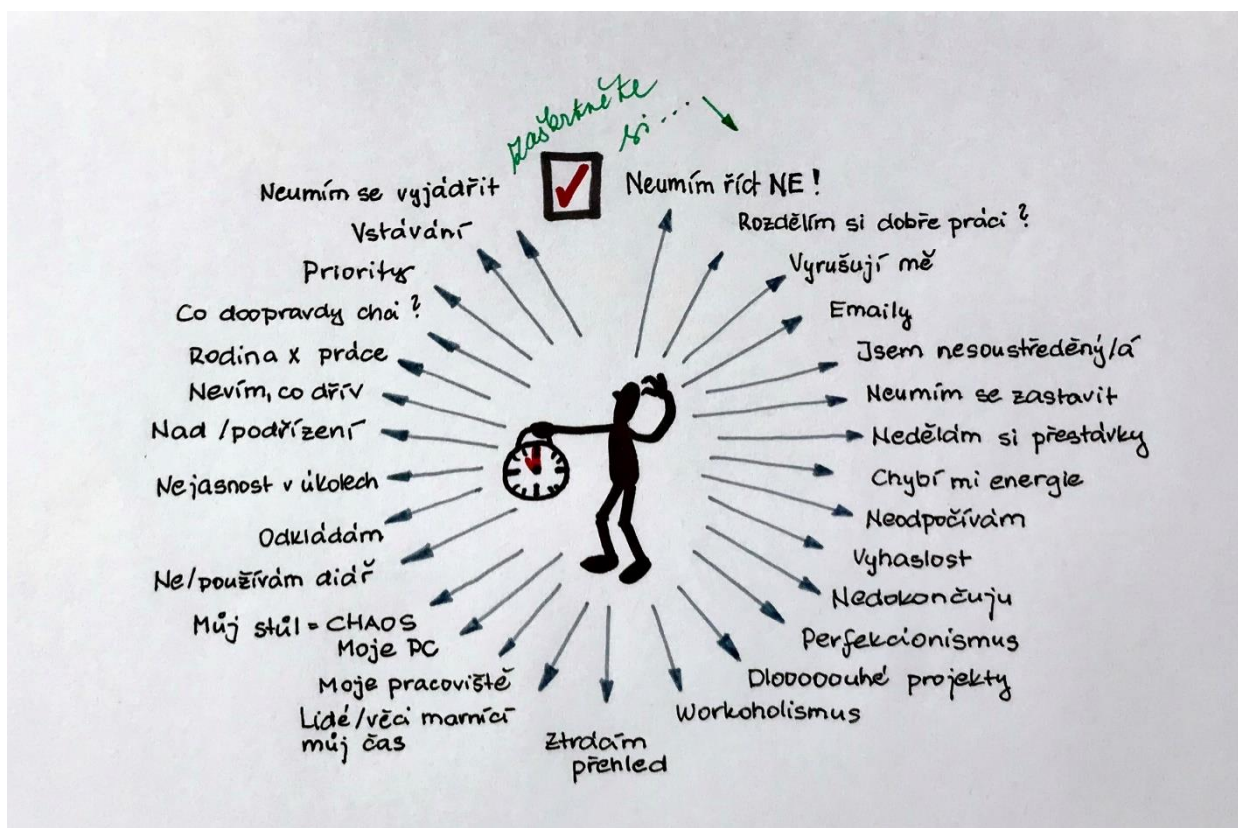 zaškrtněte
si...
Neumím říct NE!
Rozdělím si dobře práci?
Vyrušují mě
Emaily
Jsem nesoustředěný/á
Neumím se zastavit
Nedělám si přestávky
Chybí mi energie
Neodpočívám
Vyhaslost
Nedokončuju
Perfekcionismus
Dlooooouhé projekty
Workoholismus
Ztrácím
přehled
Lidé/věci marnící
můj čas
Moje pracoviště
Moje PC
Můj stůl = CHAOS
Ne/používám diář
Odkládám
Nejasnost v úkolech
Nad/podřízení
Nevím, co dřív
Rodina x práce
Co doopravdy chci?
Priority
Vstávání
Neumím se vyjádřit